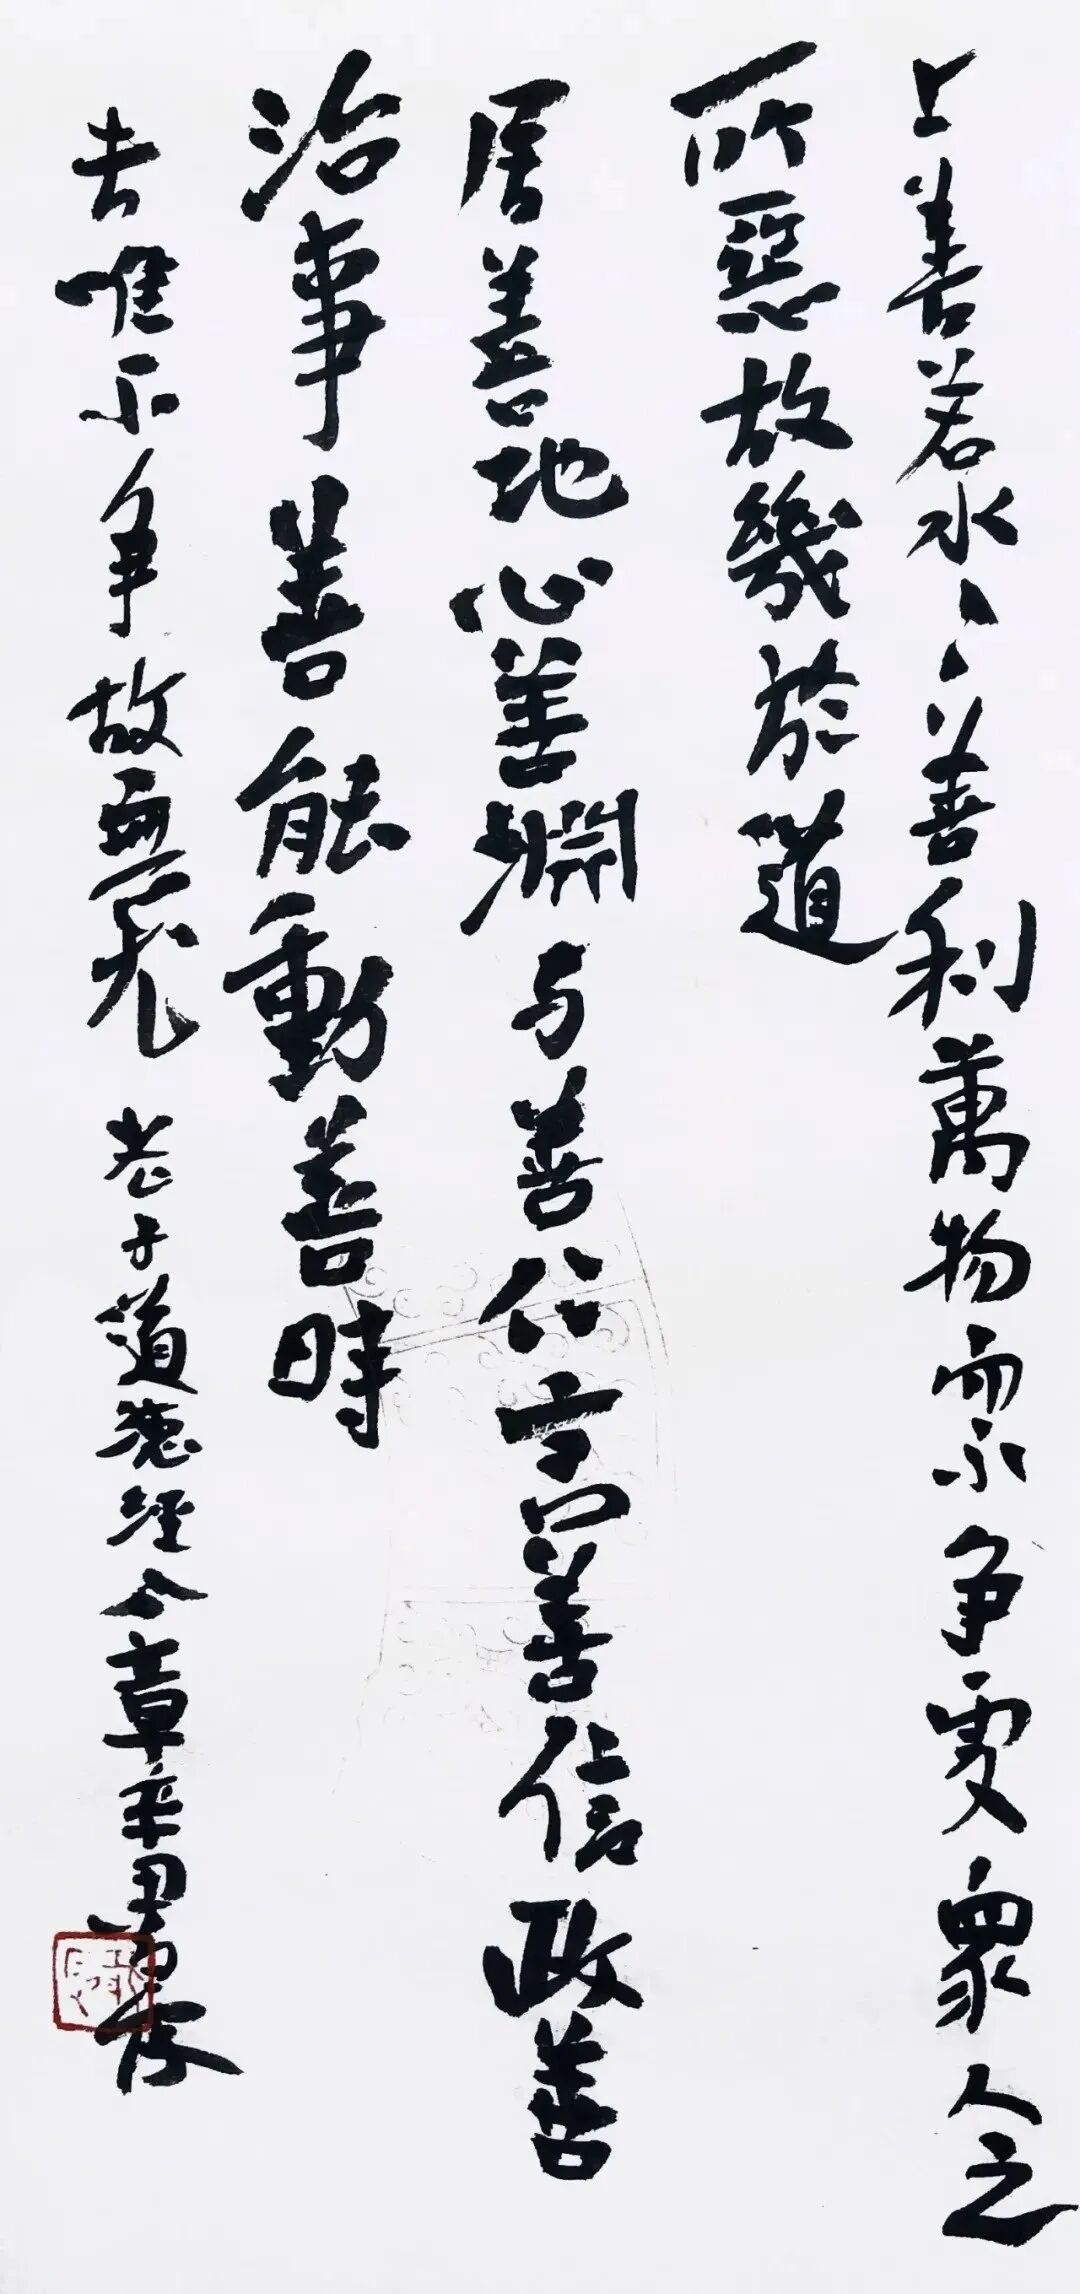 上善若水〻善利萬物而不争處衆人之
所惡故幾於道
居善地心善淵与善仁言善信政善
治事善能動善時
夫唯不争故無尤 老子道德經章辛丑